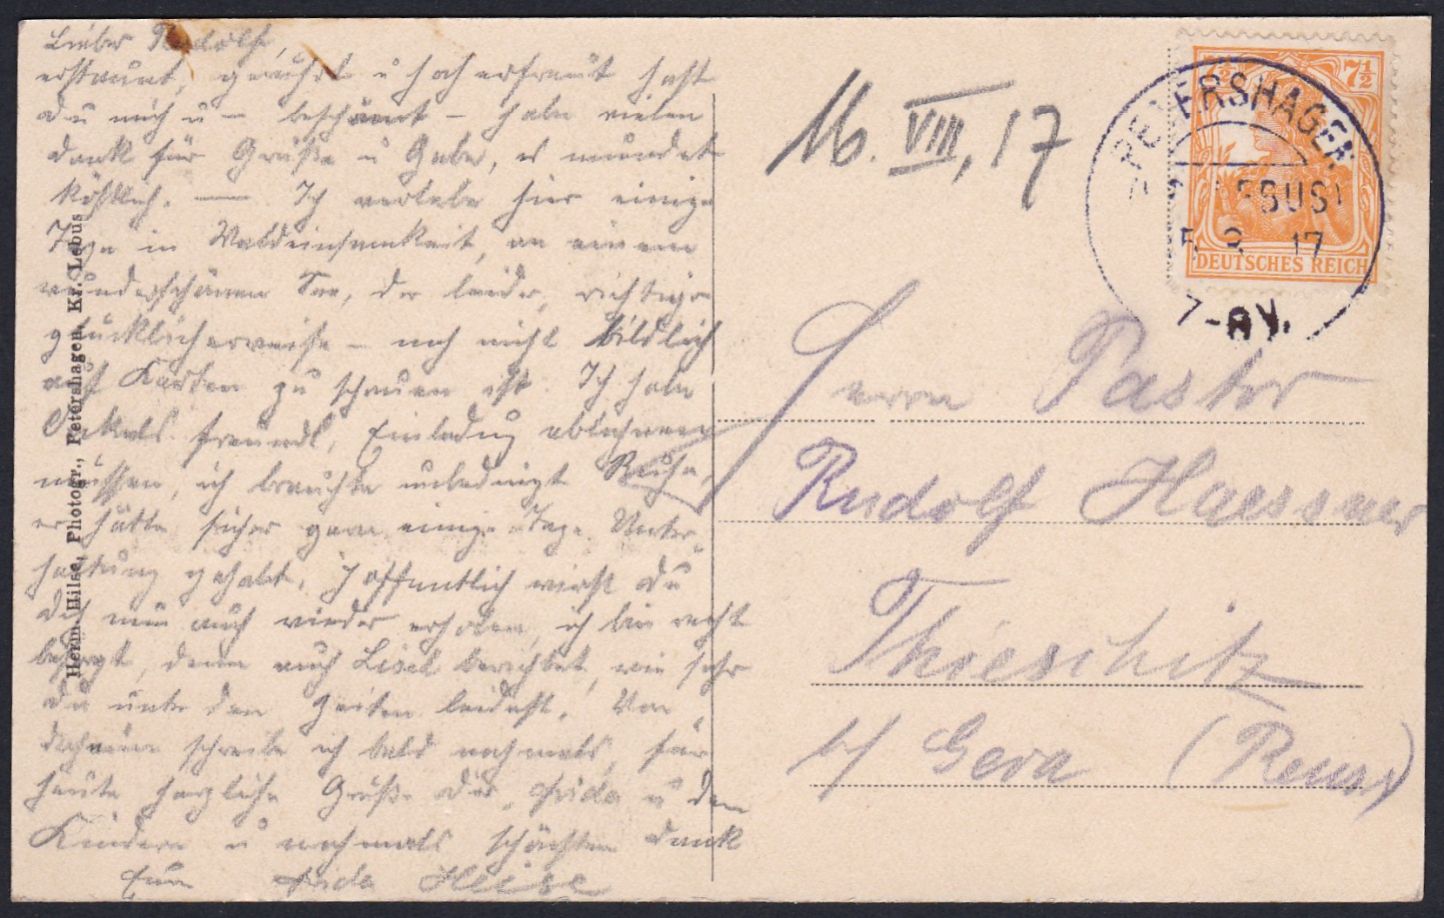 Lieber Rudolf,
erstaunt, gerührt u hoch erfreut hast
du mich u – beschämt – habe vielen
Dank für Grüße u Gabe, es mundet
köstlich. — Ich verlebe hier einige
Tage in Waldeinsamkeit, an einem
wunderschönen See, der leider, richtiger
glücklicherweise – noch nicht bildlich
auf Karten zu schauen ist. Ich habe
freundl. Einladung ablehnen
müssen, ich brauchte unbedingt Ruhe,
er hätte sicher gern einige Tage Unter-
haltung gehabt. Hoffentlich wirst Du
Dich nun auch wieder erholen, ich bin recht
besorgt, denn auch Lisel berichtet, wie sehr
Du unter den Zeiten leidest. Von
daheim schreibe ich bald nochmals, für
heute herzliche Grüße Dir, Frida u den
Kindern u nochmals schönsten Dank
Eure Frida Heise
Herm. Hilse, Photogr., Petershagen, Kr. Lebus
16. VIII, 17
7½ 7½
DEUTSCHES REICH
PETERSHAGEN
(LEBUS)
17
7-8V.
Herrn Pastor
Rudolf Haessner
Thieschitz
b/ Gera (Reuss)